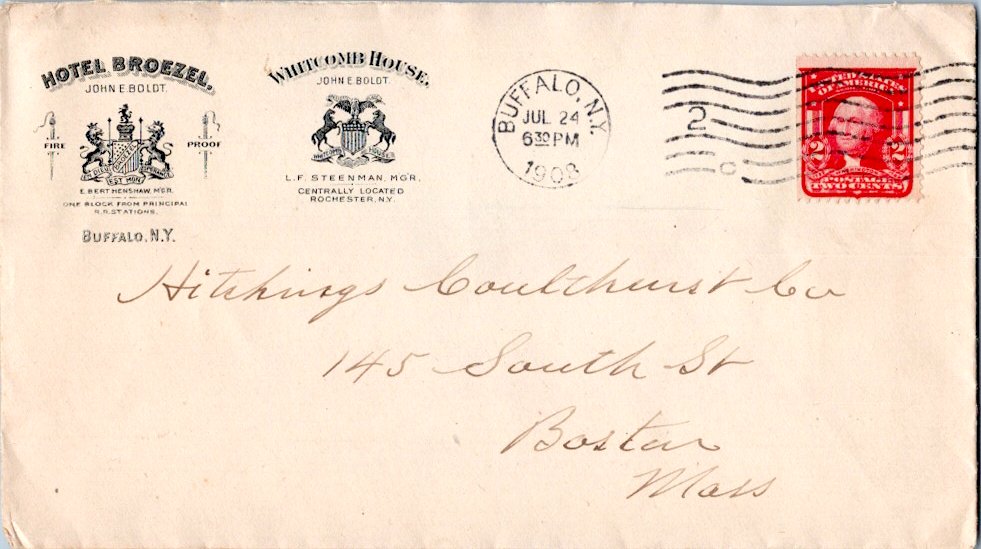 HOTEL BROEZEL.
JOHN E. BOLDT.
FIRE PROOF
EST MON
E. BERT HENSHAW, M'G'R.
ONE BLOCK FROM PRINCIPAL
R.R. STATIONS.
BUFFALO, N.Y.
WHITCOMB HOUSE.
JOHN E. BOLDT.
L.F. STEENMAN, MG'R.
CENTRALLY LOCATED
ROCHESTER, N.Y.
BUFFALO, N.Y.
JUL 24
6 30 PM
1908
2
C
UNITED STATES
OF AMERICA
2 2
WASHINGTON
POSTAGE
TWO CENTS
Hitchings Coulthurst Co
145 South St
Boston
Mass